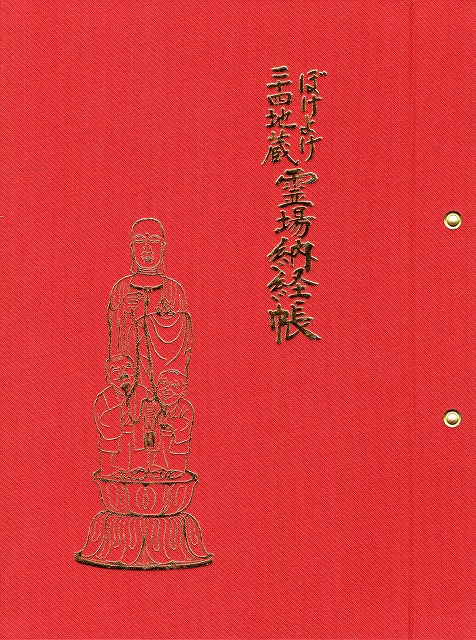 ぼけよけ
三十四地蔵
霊場納経帳